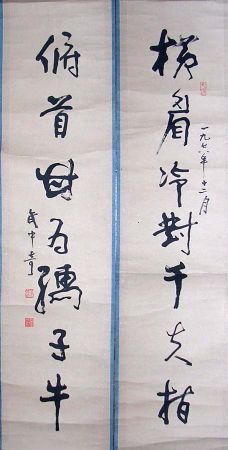 横眉冷對千夫指
一九七八年十二月
俯首甘为孺子牛
武中奇